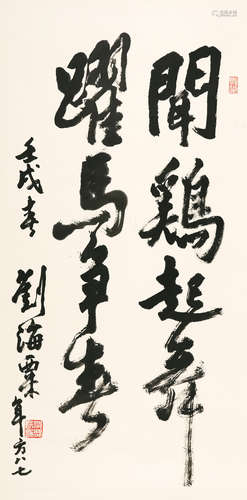 聞鷄起舞
躍馬争春
壬戌春 劉海粟 年方八七